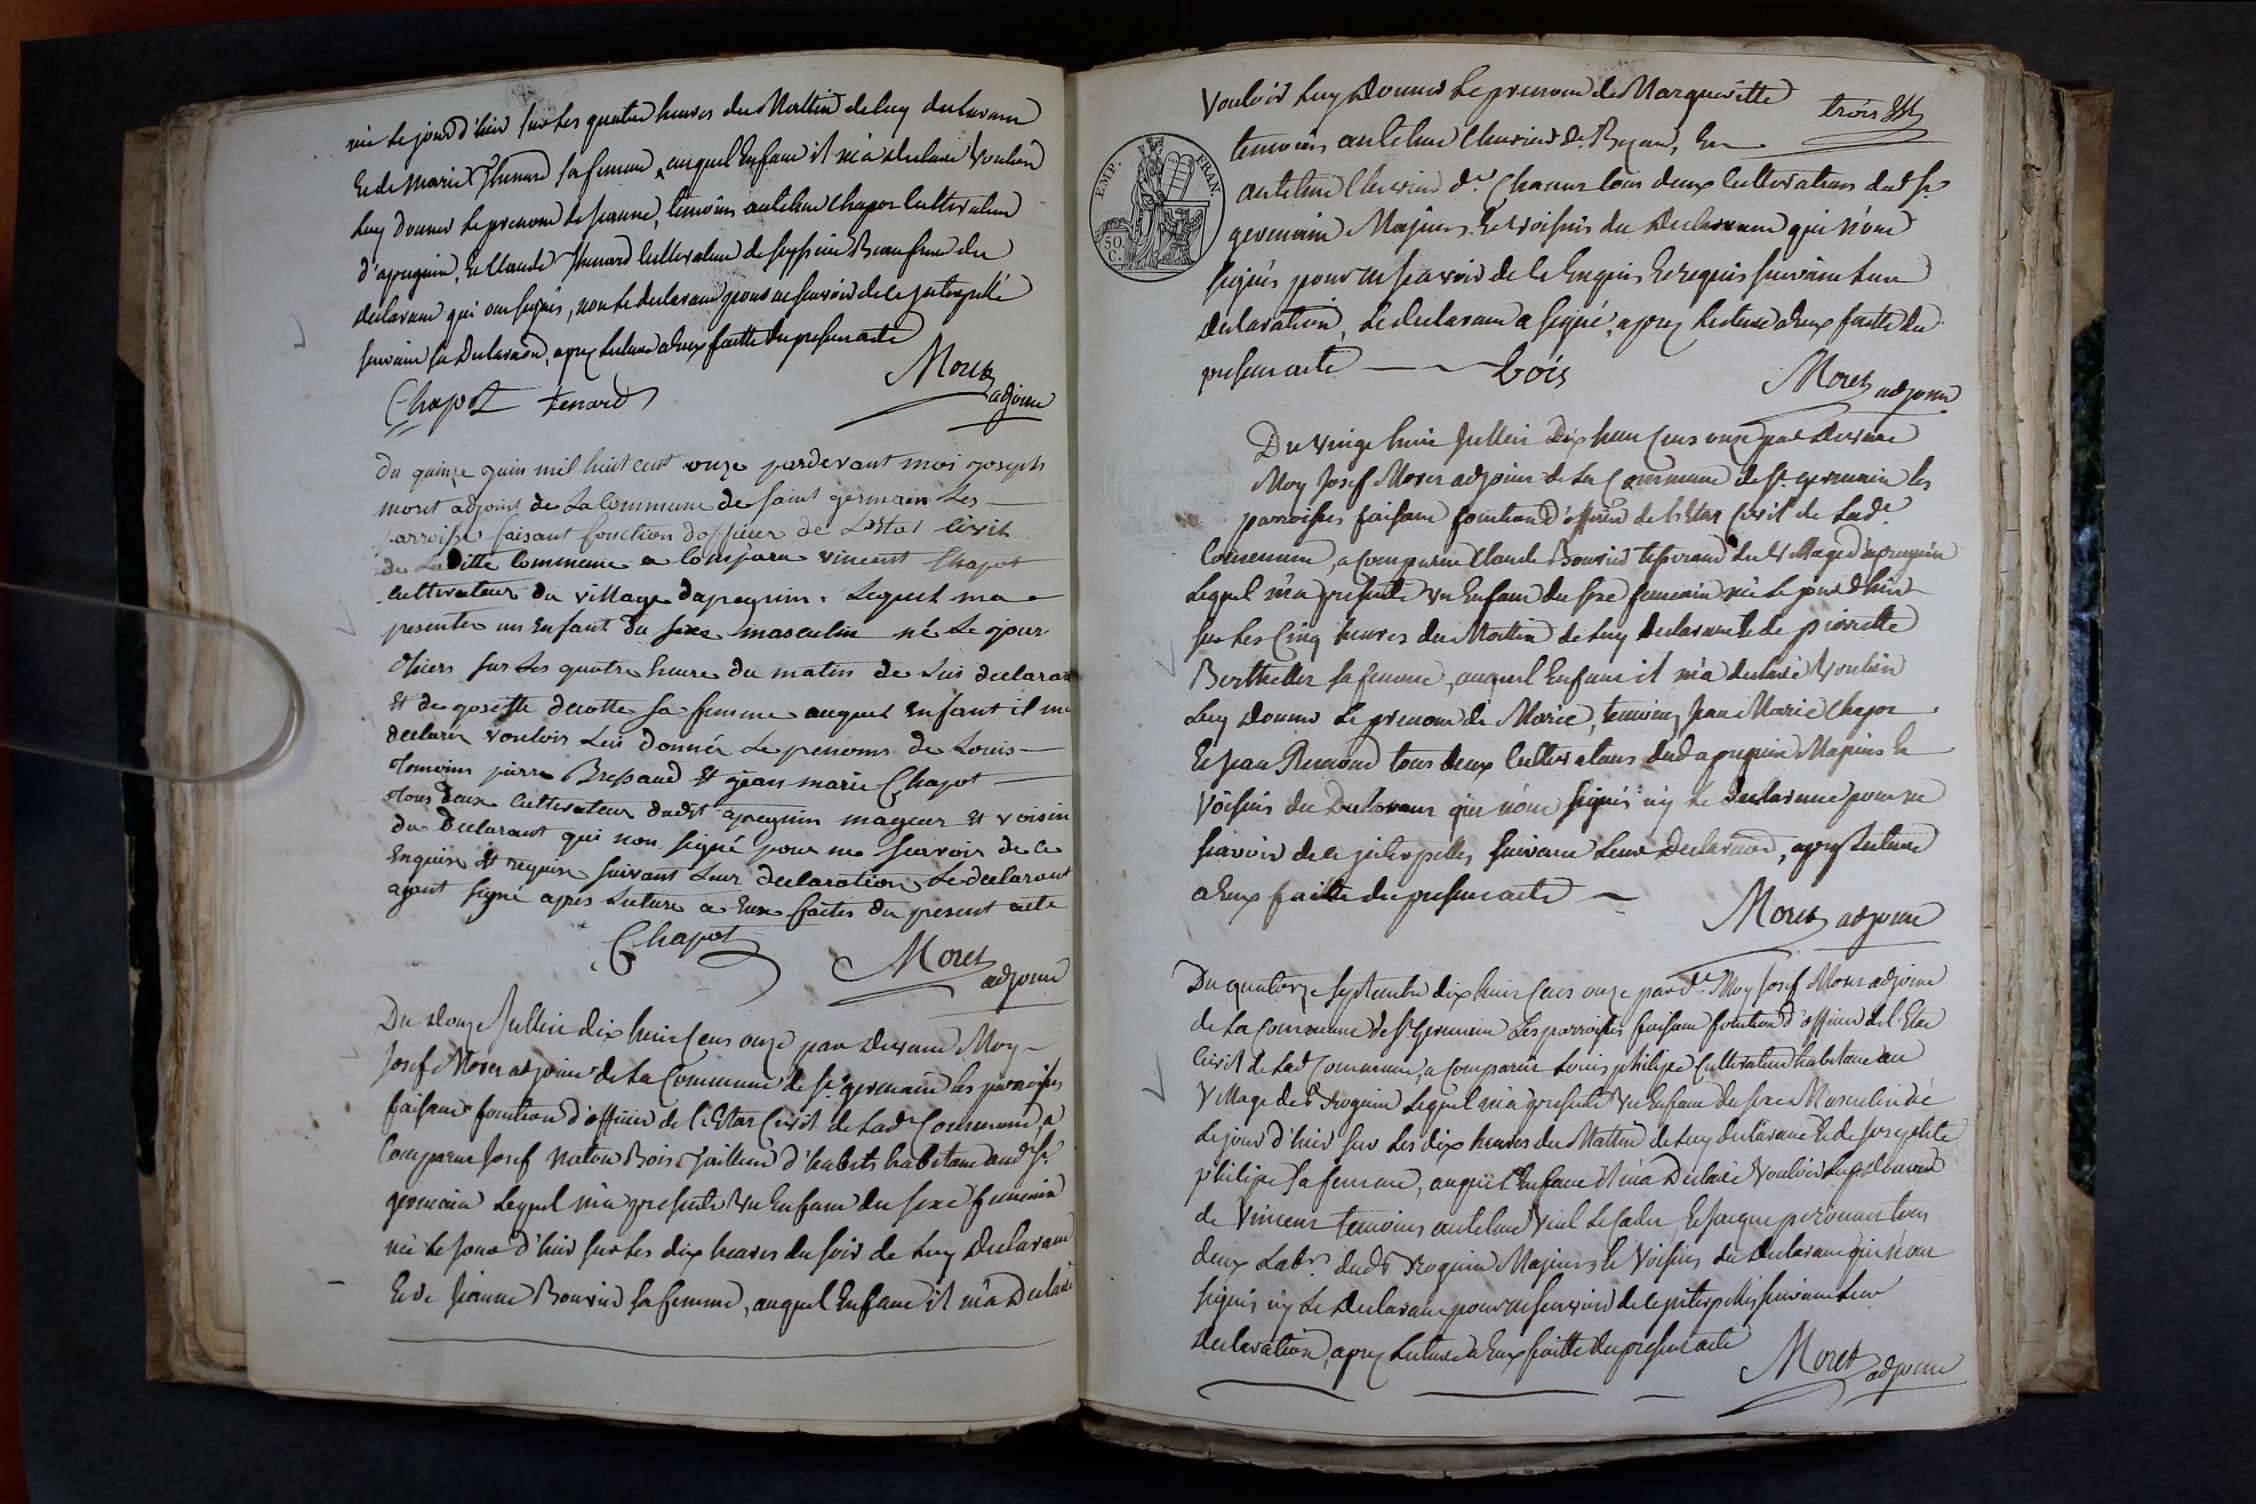 né le jour d'hier sur les quatre heures du Mattin de luy declarant
Et de Marie Thenard sa femme, auquel Enfant il m'a declaré vouloir
luy donner le prenom de jeanne, temoins antelme Chapot Cultivateur
d'apregnin, Et Claude Thenard Cultivateur de Beaufrere du
declarant qui ont signés, non le declarant pour ne scavoir de ce interpellé
suivant sa Declaraon, aprez lecture a Eux faitte du present acte
Chapot tenard Moret adjoint
du quinze juin mil huit cent onze pardevant moi joseph
moret adjoint de La Commune de saint germain Les
parroisse faisant fonction dofficier de L'Etat Civil
de Laditte Commune a Comparu vincent Chapot
Cultivateur du village dapregnin. Lequel ma
presenter un Enfant du sexe masculin né Le jour
dhiers sur Les quatre heure du matin de Lui declarant
Et de josette decotte sa femme auquel Enfant il ma
declarer vouloir Lui donnér Le prenoms de Louis
temoins pierre Bressand Et jean marie Chapot
tous deux Cultivateur dudit apregnin mageur Et voisin
du Declarant qui non signé pour ne scavoir de ce
Enquire Et require suivant Leur declaration Le declarant
ayant signé apres Lecture a Eux faites du present acte
Chapot Moret adjoint
Du Douze Jullier dix huit Cens onze par Devant Moy
Josef Moret adjoint de La Commune de St germain les parroisses
faisant fonction d'officier de l'Etat Civil de Lade Commune, a
Comparu Josef Bois tailleur d'habits habitant audt St
germain Lequel m'a presenté un Enfant du sexe feminin
né le jour d'hier sur les dix heures du soir de Luy Declarant
Et de Jeanne Bouvier sa femme, auquel Enfant il m'a Declaré
Vouloir Luy Donner Le prenom de Margueritte
trois
temoins antelme Cluvieux dt, Et
antelme Cluvieux dt tous deux Cultivateurs dudt St
germain Majeurs Et voisins du Declarant qui n'ont
signés pour ne scavoir de ce Enquis Et requis suivant leur
declaration, Le declarant a signé, aprez lecture a Eux faitte du
present acte bois Moret adjoint
EMP. FRAN.
50. C.
Du vingt huit Jullier Dix huit Cens onze par Devant
Moy Josef Moret adjoint de La Commune de St germain les
parroisses faisant fonction d'officier de l'Etat Civil de Lade
Commune, a Comparu Claude Bouvier tisserand du village d'apregnin
Lequel m'a presenté un Enfant du sexe feminin né Le jour d'hier
sur Les Cinq heures du Mattin de Luy declarant Et de pierrette
Berthellet sa femme, auquel Enfant il m'a declaré vouloir
Luy donner Le prenom de Marie, temoins Jean Marie Chapot
Et Jean tous deux Cultivateurs dudt apregnin Majeurs Et
voisins du Declarant qui n'ont signés n'y Le declarant pour ne
scavoir de ce interpellés suivant Leur Declaraon, aprez Lecture
a Eux faitte du present acte
Moret adjoint
Du quatorze septembre dix huit Cens onze par dt Moy Josef Moret adjoint
de La Commune de St Germain Les parroisses faisant fonction d'officier de l'Etat
Civil de Lade Commune, a Comparut Louis philipe Cultivateur habitant au
village de Lequel m'a presenté un Enfant du sexe Masculin né
Le jour d'hier sur Les dix heures du Mattin de Luy declarant Et de
philipe sa femme, auquel Enfant il m'a Declaré vouloir Luy donner
de vincent temoins antelme vial Le Cadet, Et Jacque tous
deux Labrs dudt Majeurs Et voisins du Declarant qui n'ont
signés n'y Le Declarant pour ne scavoir de ce interpellés suivant Leur
Declaration, aprez Lecture a Eux faitte du present acte
Moret adjoint